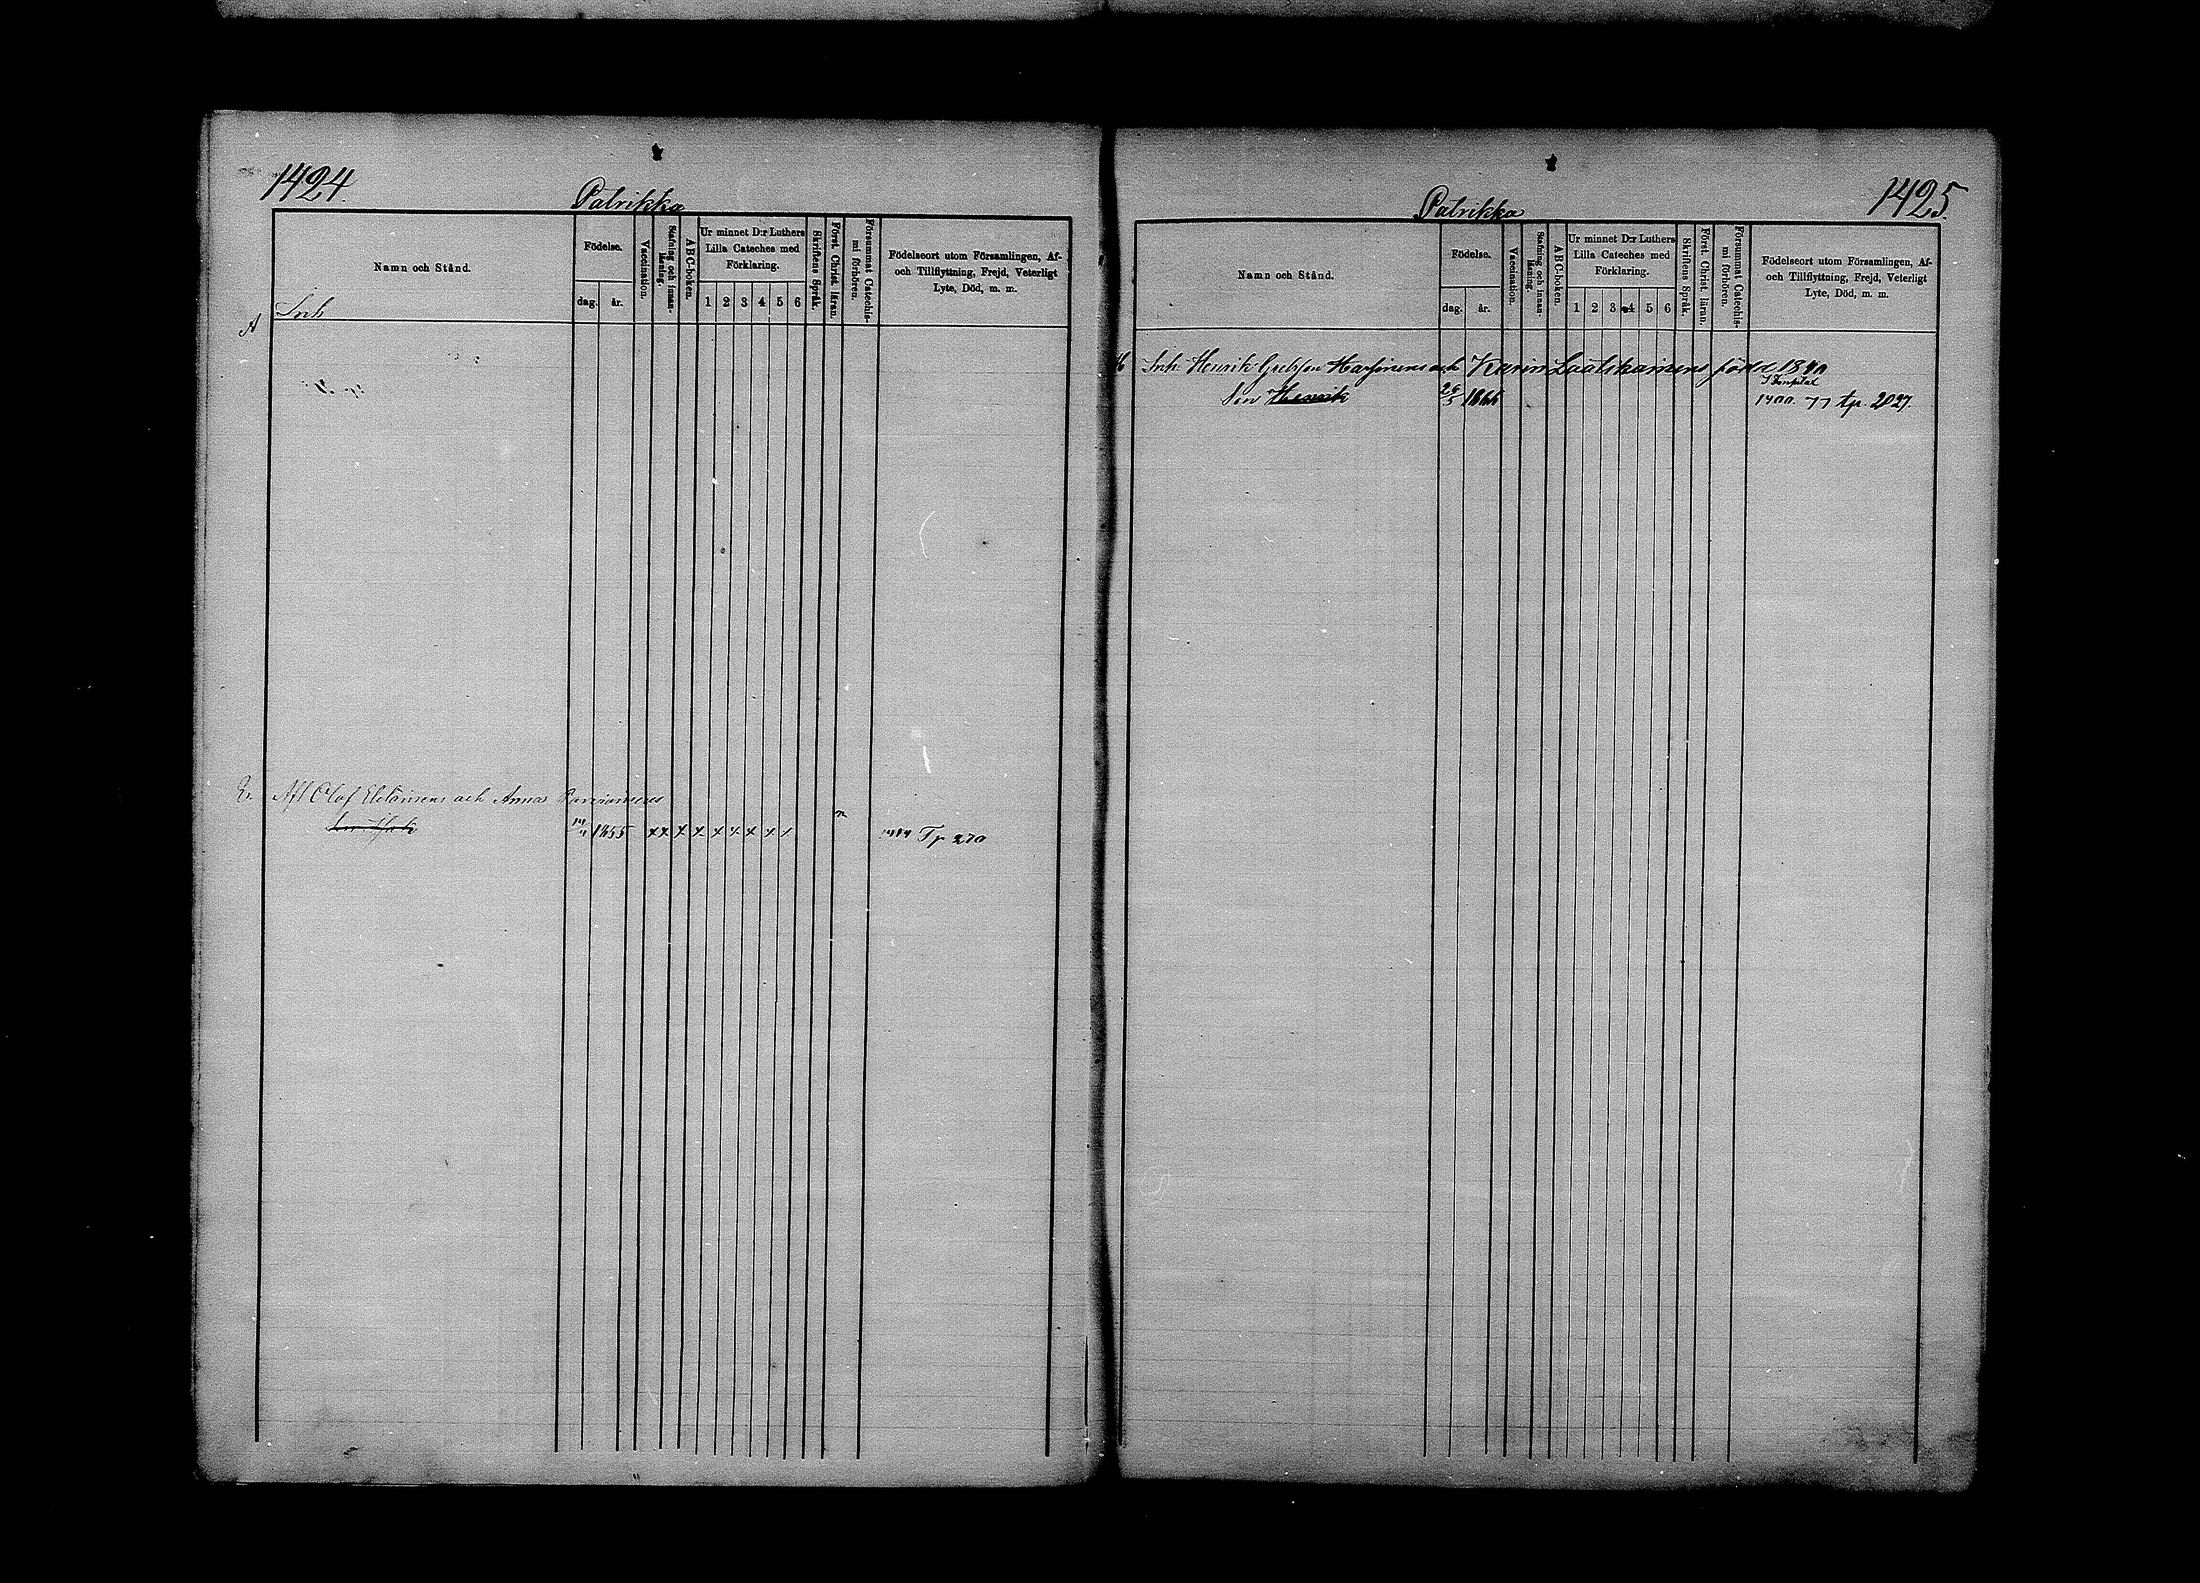 1424.
Patrikka
Namn och Stånd.
Födelse.
dag. år.
Vaccination.
Stafning och innan-läsning.
ABC-boken.
Ur minnet D:r Luthers
Lilla Cateches med
Förklaring.
1 2 3 4 5 6
Skriftens Språk.
Först. Christ. läran.
Försummat Catechis-
mi förhören.
Födelseort utom Församlingen, Af-
och Tillflyttning, Frejd, Veterligt
Lyte, Död, m. m.
Inh
A
Afl Olof och Annas
Son 1855 x x x x x x x x
n
Tp 270
1425.
Patrikka
Namn och Stånd.
Födelse.
dag. år.
Vaccination.
Stafning och innan-läsning.
ABC-boken.
Ur minnet D:r Luthers
Lilla Cateches med
Förklaring.
1 2 3 4 5 6
Skriftens Språk.
Först. Christ. läran.
Försummat Catechis-
mi förhören.
Födelseort utom Församlingen, Af-
och Tillflyttning, Frejd, Veterligt
Lyte, Död, m. m.
Inh. Henrik och Karin Laatikainens född 1840
Son Henrik 26/5 1866 77 tp. 2027.